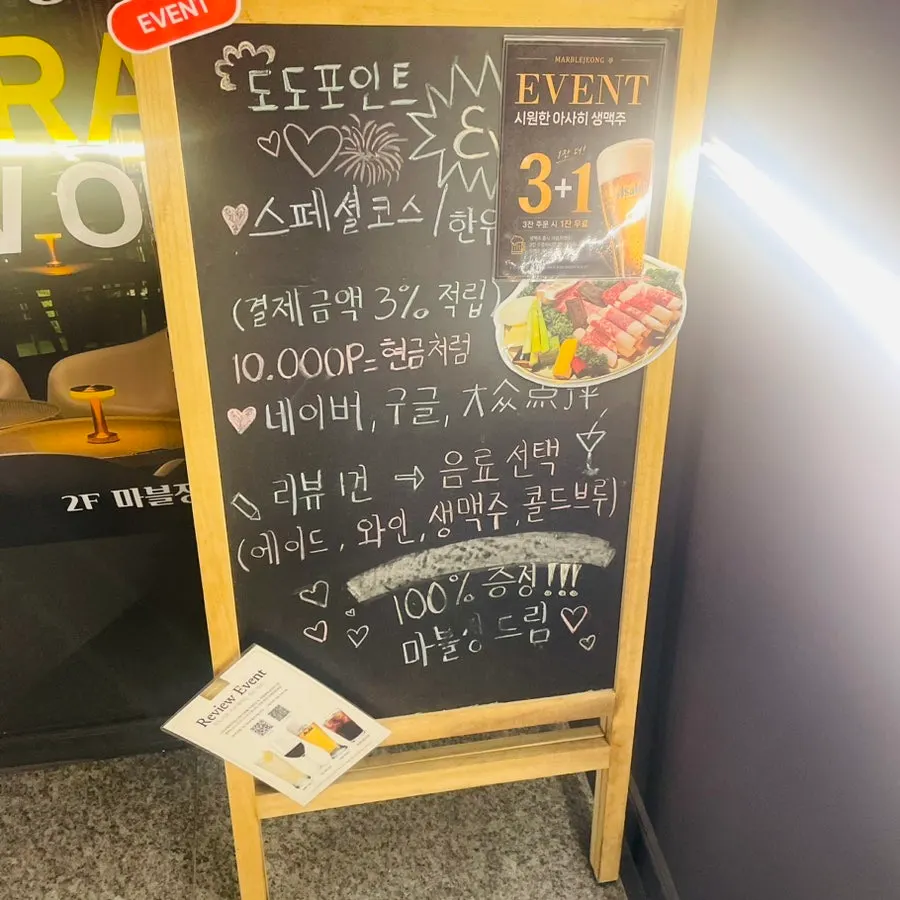 EVENT
RA
NO
2F 마블정
도도포인트
스페셜코스 / 한우
(결제금액 3% 적립)
10.000P=현금처럼
네이버, 구글, 大众点评
리뷰 1건 → 음료 선택
(에이드, 와인, 생맥주, 콜드브루)
100% 증정!!!
마블정 드림
MARBLEJEONG
EVENT
시원한 아사히 생맥주
1잔 더!
3+1
3잔 주문 시 1잔 무료
Asahi
Review Event